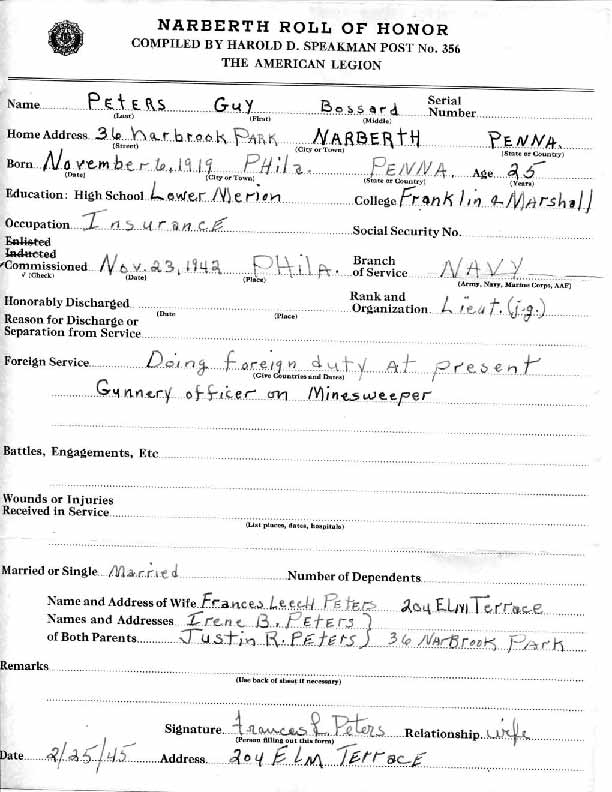 NARBERTH ROLL OF HONOR
COMPILED BY HAROLD D. SPEAKMAN POST No. 356
THE AMERICAN LEGION
Name PETERS GUY Bossard Serial Number
(Last) (First) (Middle)
Home Address 36 Narbrook PARK NARBERTH PENNA.
(Street) (City or Town) (State or Country)
Born November 6, 1919 PHila. PENNA. Age 25
(Date) (City or Town) (State or Country) (Years)
Education: High School Lower Merion College Franklin & Marshall
Occupation InsurancE Social Security No.
Enlisted
Inducted
Commissioned Nov. 23, 1942 PHilA. Branch of Service NAVY
√ (Check) (Date) (Place) (Army, Navy, Marine Corps, AAF)
Honorably Discharged Rank and Organization Lieut. (j.g.)
(Date (Place)
Reason for Discharge or
Separation from Service
Foreign Service Doing foreign duty At present
(Give Countries and Dates)
Gunnery officer on Minesweeper
Battles, Engagements, Etc
Wounds or Injuries
Received in Service
(List places, dates, hospitals)
Married or Single Married Number of Dependents
Name and Address of Wife Frances Leech Peters 204 ELM Terrace
Names and Addresses Irene B. PETERS }
of Both Parents Justin R. PETERS } 36 NarBrook Park
Remarks
(Use back of sheet if necessary)
Signature Frances L Peters Relationship wife
(Person filling out this form)
Date 2/25/45 Address. 204 ELM TERRACE